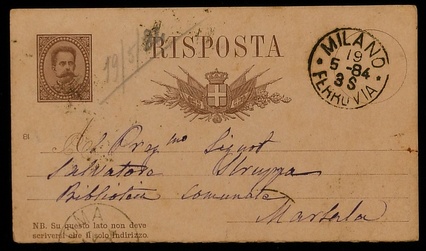 RISPOSTA
19/5/84
MILANO
19
5-84
3S
FERROVIA
Al Preg.mo Signor
Salvatore Struppa
Biblioteca Comunale
Marsala
NB. Su questo lato non deve
scriversi che il solo indirizzo.